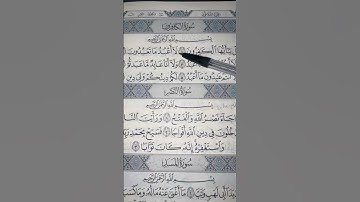 سورة الكافرون
بسم الله الرحمن الرحيم
يأيها الكفرون لا أعبد ما تعبدون
ولا أنا عابد ما عبدتم
عبدون ما أعبد لكم دينكم ولي دين
سورة النصر
بسم الله الرحمن الرحيم
جاء نصر الله والفتح ورأيت
يدخلون في دين الله أفواجا فسبح بحمد ربك
واستغفره إنه كان توابا
سورة المسد
بسم الله الرحمن الرحيم
يدا أبي لهب وتب ما أغنى عنه ماله وما كسب